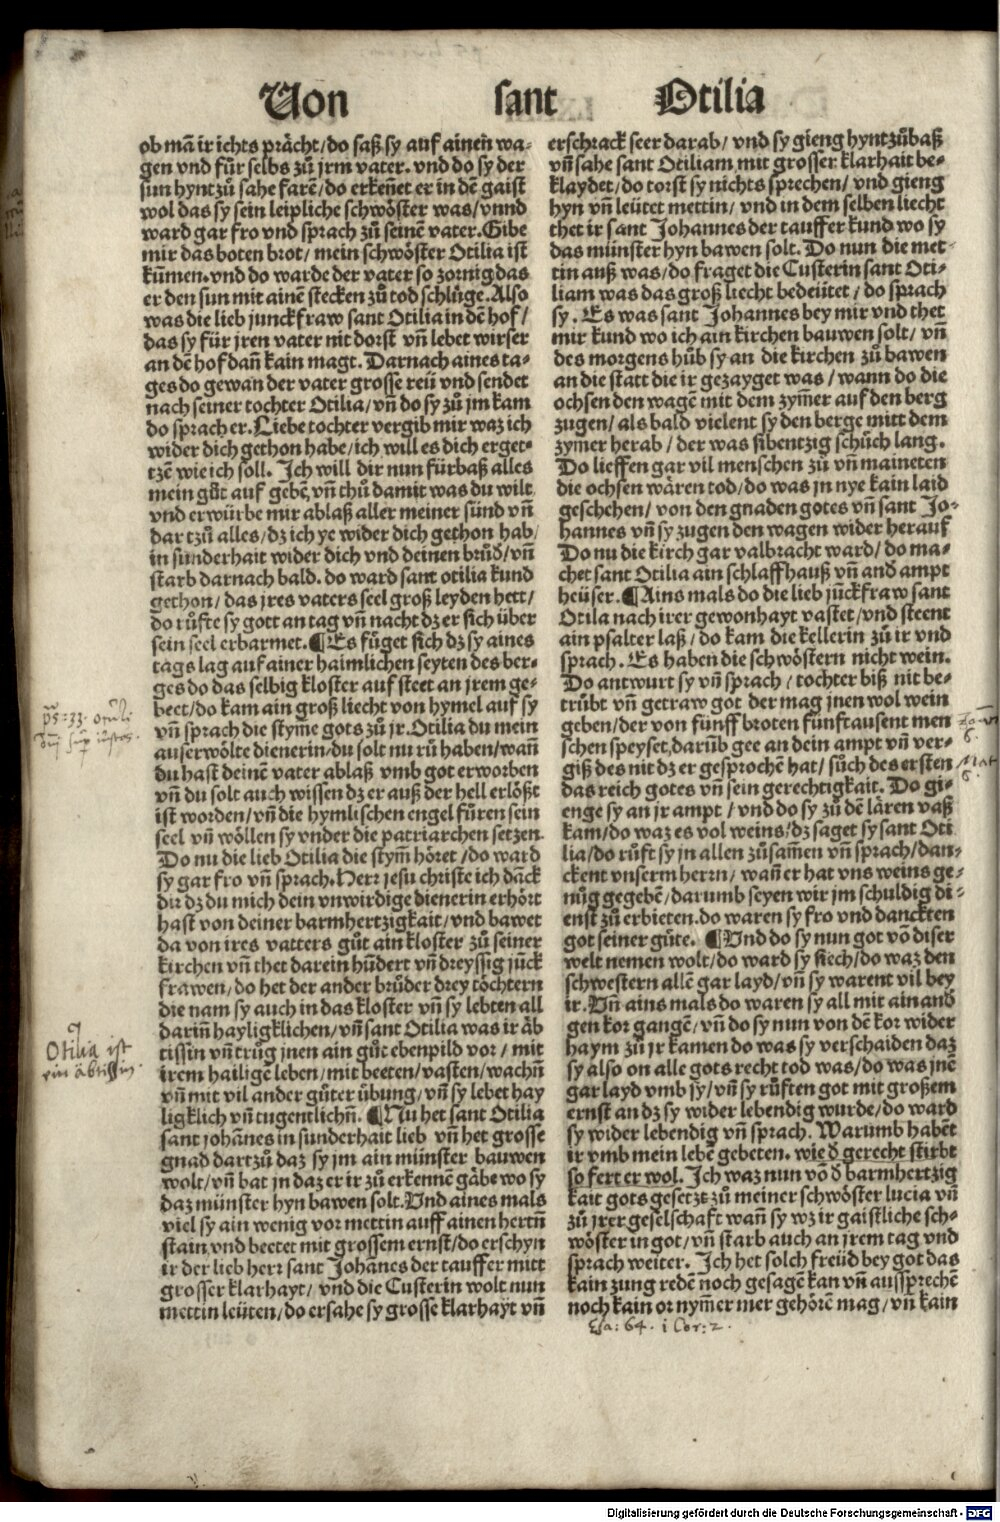 Von sant Otilia
ob mā ir ichts prächt/do saß sy auf ainen wa-
gen vnd für selbs zů jrm vater. vnd do sy der
sun hyntzů sahe farē/do erkeñet er in dē gaist
wol das sy sein leipliche schwöster was/vnnd
ward gar fro vnd sprach zů seinē vater. Gibe
mir das boten brot/mein schwöster Otilia ist
kūmen. vnd do warde der vater so zornig das
er den sun mit ainē stecken zů tod schlůge. Also
was die lieb junckfraw sant Otilia in dē hof/
das sy für jren vater nit dorst vñ lebet wirser
an dē hof dañ kain magt. Darnach aines ta-
ges do gewan der vater grosse reü vnd sendet
nach seiner tochter Otilia/vñ do sy zů jm kam
do sprach er. Liebe tochter vergib mir waz ich
wider dich gethon habe/ich will es dich erget-
tzē wie ich soll. Ich will dir nun fürbaß alles
mein gůt auf gebē, vñ thů damit was du wilt
vnd erwürbe mir ablaß aller meiner sünd vñ
dartzů alles/dz ich ye wider dich gethon hab/
in sunderhait wider dich vnd deinen brůd/vñ
starb darnach bald. do ward sant otilia kund
gethon/das jres vaters seel groß leyden hett/
do růfte sy gott an tag vñ nacht dz er sich über
sein seel erbarmet. ¶Es füget sich dz sy aines
tags lag auf ainer haimlichen seyten des ber-
ges do das selbig kloster auf steet an jrem ge-
beet/do kam ain groß liecht von hymel auf sy
vñ sprach die styme gots zů jr. Otilia du mein
auserwölte dienerin du solt nu rů haben/wañ
du hast deinē vater ablaß vmb got erworben
vñ du solt auch wissen dz er auß der hell erlößt
ist worden/vñ die hymlischen engel füren sein
seel vñ wöllen sy vnder die patriarchen setzen.
Do nu die lieb Otilia die stym̄ höret/do ward
sy gar fro vñ sprach. Herr jesu christe ich dāck
dir dz du mich dein vnwirdige dienerin erhört
hast von deiner barmhertzigkait/vnd bawet
da von ires vatters gůt ain kloster zů seiner
kirchen vñ thet darein hūdert vñ dreyssig jūck
frawen/do het der ander brůder drey töchtern
die nam sy auch in das kloster vñ sy lebten all
dariñ hayligklichen/vñ sant Otilia was ir äb
tissin vñ trůg jnen ain gůt ebenpild vor/mit
irem hailigē leben/mit beeten/vasten/wachñ
vñ mit vil ander gůter übung/vñ sy lebet hay
ligklich vñ tugentlichñ. ¶Nu het sant Otilia
sant johānes in sunderhait lieb vñ het grosse
gnad dartzů daz sy jm ain münster bauwen
wolt/vñ bat jn daz er ir zů erkennē gäbe wo sy
daz münster hyn bawen solt. Vnd aines mals
viel sy ain wenig vor mettin auff ainen hertñ
stain vnd beetet mit grossem ernst/do erschyn
ir der lieb herr sant Johānes der tauffer mitt
grosser klarhayt/ vnd die Custerin wolt nun
mettin leüten/do ersahe sy grosse klarhayt vñ
erschrack seer darab/ vnd sy gieng hyntzůbaß
vñ sahe sant Otiliam mit grosser klarhait be-
klaydet/do torst sy nichts sprechen/ vnd gieng
hyn vñ leütet mettin/ vnd in dem selben liecht
thet ir sant Johannes der tauffer kund wo sy
das münster hyn bawen solt. Do nun die met-
tin auß was/do fraget die Custerin sant Oti-
liam was das groß liecht bedeütet/do sprach
sy. Es was sant Johannes bey mir vnd thet
mir kund wo ich ain kirchen bauwen solt/ vñ
des morgens hůb sy an die kirchen zů bawen
an die statt die ir gezayget was/wann do die
ochsen den wagē mit dem zym̄er auf den berg
zugen/als bald vielent sy den berge mitt dem
zymer herab/der was sibentzig schůch lang.
Do lieffen gar vil menschen zů vñ maineten
die ochsen wären tod/do was jn nye kain laid
geschehen/von den gnaden gotes vñ sant Jo-
hannes vñ sy zugen den wagen wider herauf
Do nu die kirch gar valbracht ward/do ma-
chet sant Otilia ain schlaffhauß vñ and ampt
heüser. ¶Ains mals do die lieb jūckfraw sant
Otila nach irer gewonhayt vastet/vnd steent
ain psalter laß/do kam die kellerin zů ir vnd
sprach. Es haben die schwöstern nicht wein.
Do antwurt sy vñ sprach/tochter biß nit be-
trübt vñ getraw got der mag jnen wol wein
geben/der von fünff broten funftausent men
schen speyset, darūb gee an dein ampt vñ ver-
giß des nit dz er gesprochē hat/sůch des ersten
das reich gotes vñ sein gerechtigkait. Do gi-
enge sy an jr ampt/vnd do sy zů dē lären vaß
kam/do waz es vol weins/dz saget sy sant Oti
lia/do růft sy jn allen zůsam̄en vñ sprach/dan-
ckent vnserm herrn/wañ er hat vns weins ge-
nůg gegebē/darumb seyen wir jm schuldig di-
enst zů erbieten. do waren sy fro vnd danckten
got seiner güte. ¶Vnd do sy nun got vō diser
welt nemen wolt/do ward sy siech/do waz den
schwestern allē gar layd/vñ sy warent vil bey
ir. Vñ ains mals do waren sy all mit ainand
gen kor gangē/vñ do sy nun von dē kor wider
haym zů jr kamen do was sy verschaiden daz
sy also on alle gots recht tod was/do was jnē
gar layd vmb sy/vñ sy růften got mit großem
ernst an dz sy wider lebendig wurde/do ward
sy wider lebendig vñ sprach. Warumb habēt
ir vmb mein lebē gebeten. wie d gerecht stirbt
so fert er wol. Ich waz nun vō d barmhertzig
kait gots gesetzt zů meiner schwöster lucia vñ
zů jrer geselschaft wañ sy wz ir gaistliche sch-
wöster in got/vñ starb auch an jrem tag vnd
sprach weiter. Ich het solch freüd bey got das
kain zung redē noch gesagē kan vñ aussprechē
noch kain or nym̄er mer gehörē mag/vñ kain
ps: 33. oculi
Otilia ist
ein äbtissin.
Mat
6.
Esa: 64. i Cor: 2.
Digitalisierung gefördert durch die Deutsche Forschungsgemeinschaft - DFG